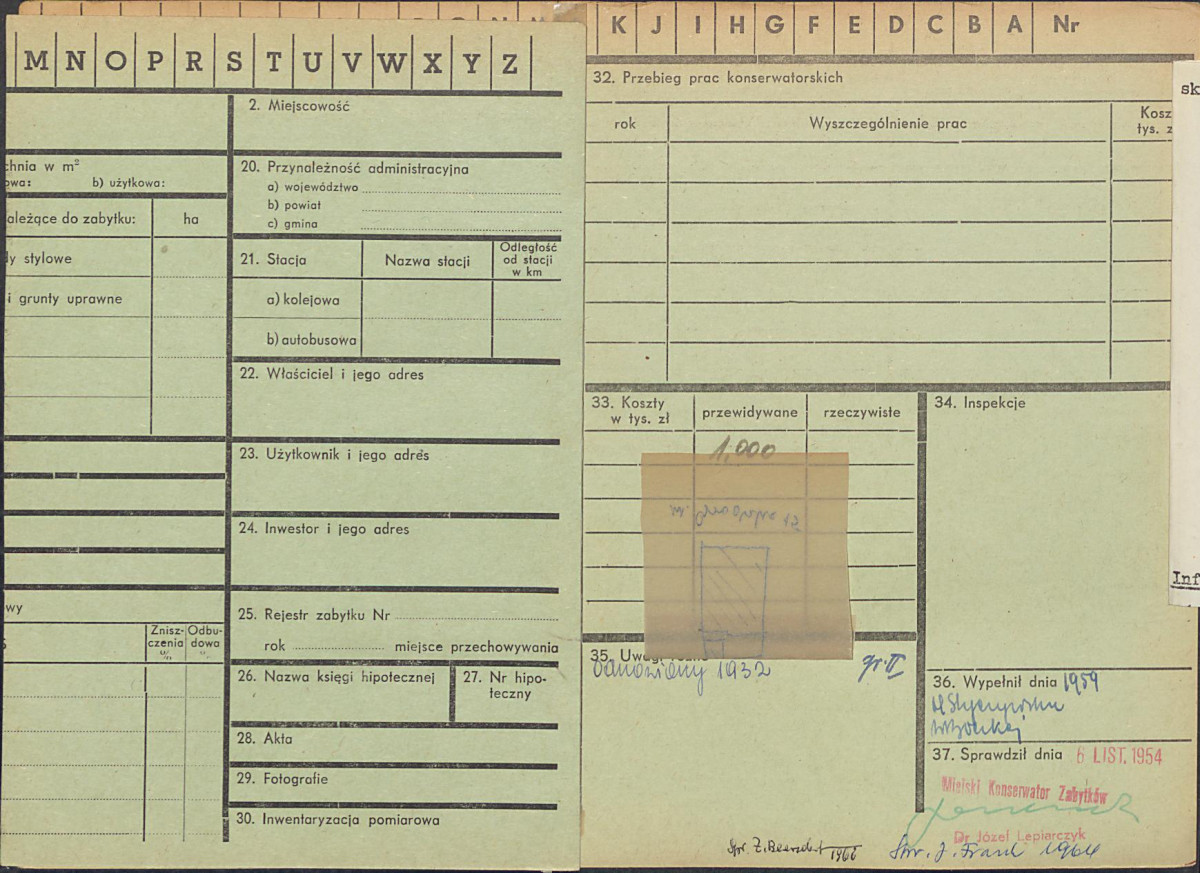 M N O P R S T U V W X Y Z
K J I H G F E D C B A Nr
2. Miejscowość
chnia w m²
owa: b) użytkowa:
20. Przynależność administracyjna
a) województwo
b) powiat
c) gmina
ależące do zabytku: ha
dy stylowe
i grunty uprawne
21. Stacja Nazwa stacji Odległość
od stacji
w km
a) kolejowa
b) autobusowa
22. Właściciel i jego adres
23. Użytkownik i jego adres
24. Inwestor i jego adres
25. Rejestr zabytku Nr
rok miejsce przechowywania
owy
Znisz-
czenia
%
Odbu-
dowa
%
26. Nazwa księgi hipotecznej
27. Nr hipo-
teczny
28. Akta
29. Fotografie
30. Inwentaryzacja pomiarowa
32. Przebieg prac konserwatorskich
rok Wyszczególnienie prac Kosz
tys. z
33. Koszty
w tys. zł
przewidywane rzeczywiste
1,000
34. Inspekcje
35. Uwagi różne
odnowiony 1932 gr. II
36. Wypełnił dnia 1959
37. Sprawdził dnia 6 LIST. 1954
Miejski Konserwator Zabytków
Dr Józef Lepiarczyk
Spr. J. Frank 1964
Spr. Z. 1966
sk
Inf